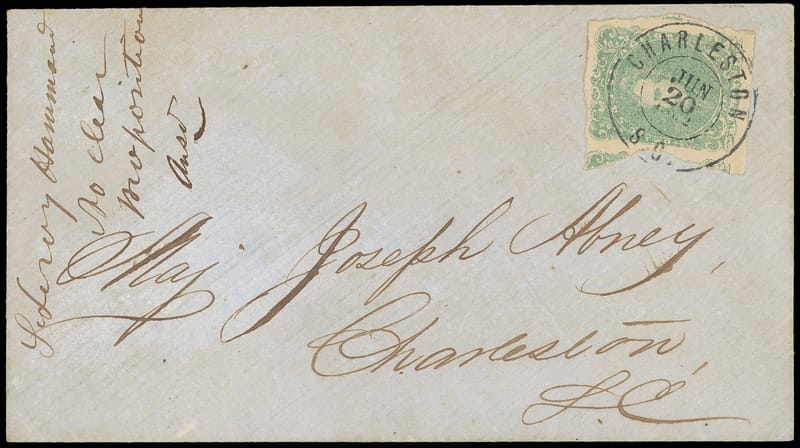 CHARLESTON
JUN
20
S.C.
Maj Joseph Abney,
Charleston,
S.C.
Hammond
No clear
proposition
Ansd